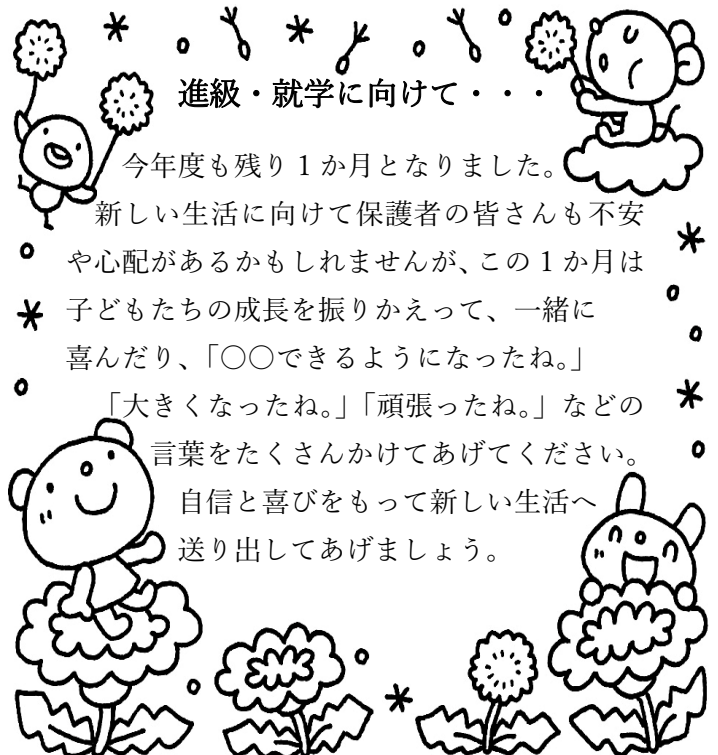 進級・就学に向けて・・・
今年度も残り1か月となりました。
新しい生活に向けて保護者の皆さんも不安
や心配があるかもしれませんが、この1か月は
子どもたちの成長を振りかえって、一緒に
喜んだり、「〇〇できるようになったね。」
「大きくなったね。」「頑張ったね。」などの
言葉をたくさんかけてあげてください。
自信と喜びをもって新しい生活へ
送り出してあげましょう。